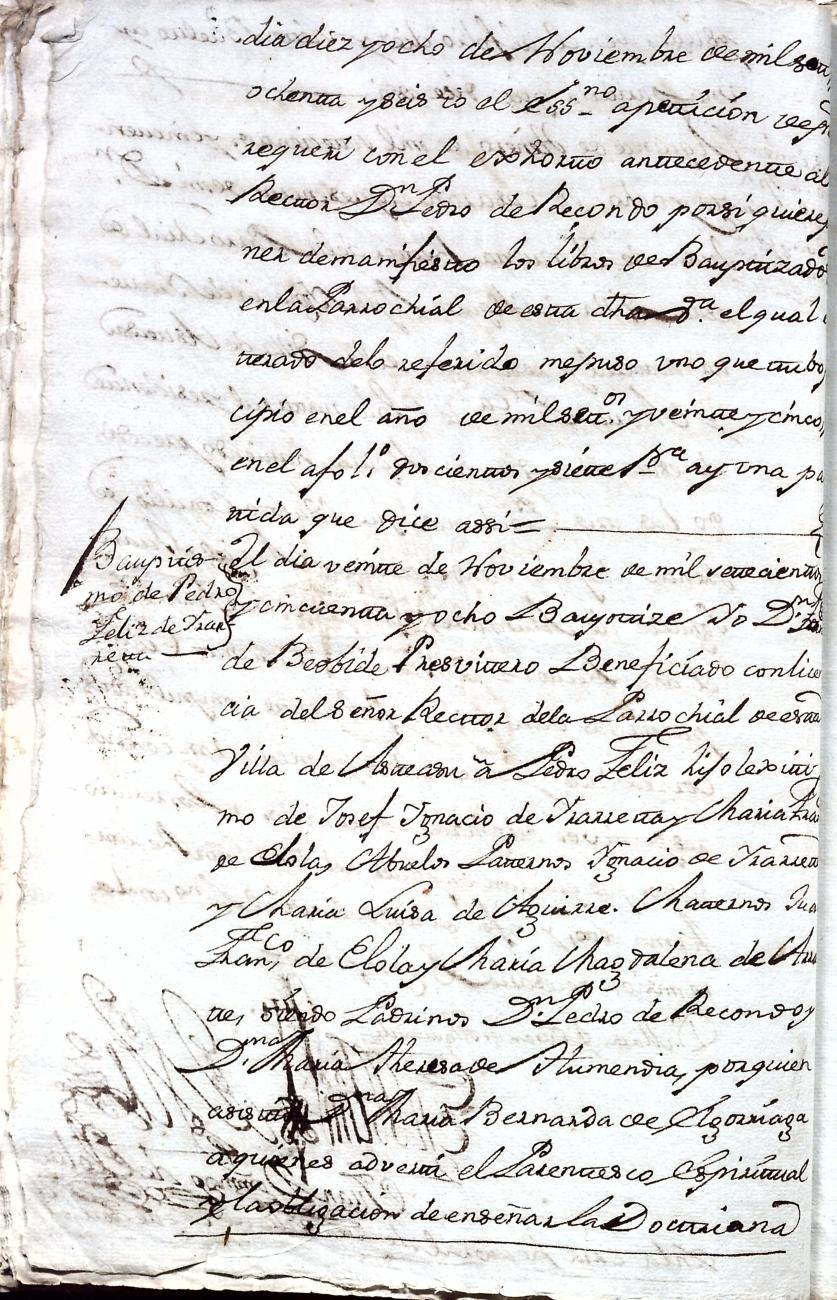 dia diez yocho de Noviembre de mil sett
ochenta yseis io el Essno apeticion de
requeri con el exhorto antecedente al
Rector Dn Pedro de Recondo porsi quiere
ner demanifiesto los libros de Bauptizado
enla Parrochial de esta dha Va. elqual
terado delo referido mepuso uno que tubo
cipio enel año de mil settos. yveinte y cinco,
enel afoli.º dos cientos ysiete ay una pa
rtida que dice assi =
Bauptis
mo de Pedro
Feliz de Irar
reta
El dia veinte de Noviembre de mil setecientos
y cincuenta y ocho Bauptize Yo Dn
de Besbide Presvittero Beneficiado con lice
cia del Señor Rector dela Parrochial de esta
Villa de Asteasu à Pedro Feliz hijo lexiti
mo de Josef Ygnacio de Irarreta y Maria Fra
de Elola, Abuelos Paternos Ygnacio de Irarret
y Maria Luisa de Aguirre. Maternos Jua
Franco, de Elola y Maria Magdalena de
ne, siendo Padrinos Dn Pedro de Recondo y
Dna Maria Theresa de Atumendia, por quien
asistio Dna Maria Bernarda de Elgorriaga
a quienes adverti el Parentesco Espiritual
y la obligacion de enseñar la Doctriana